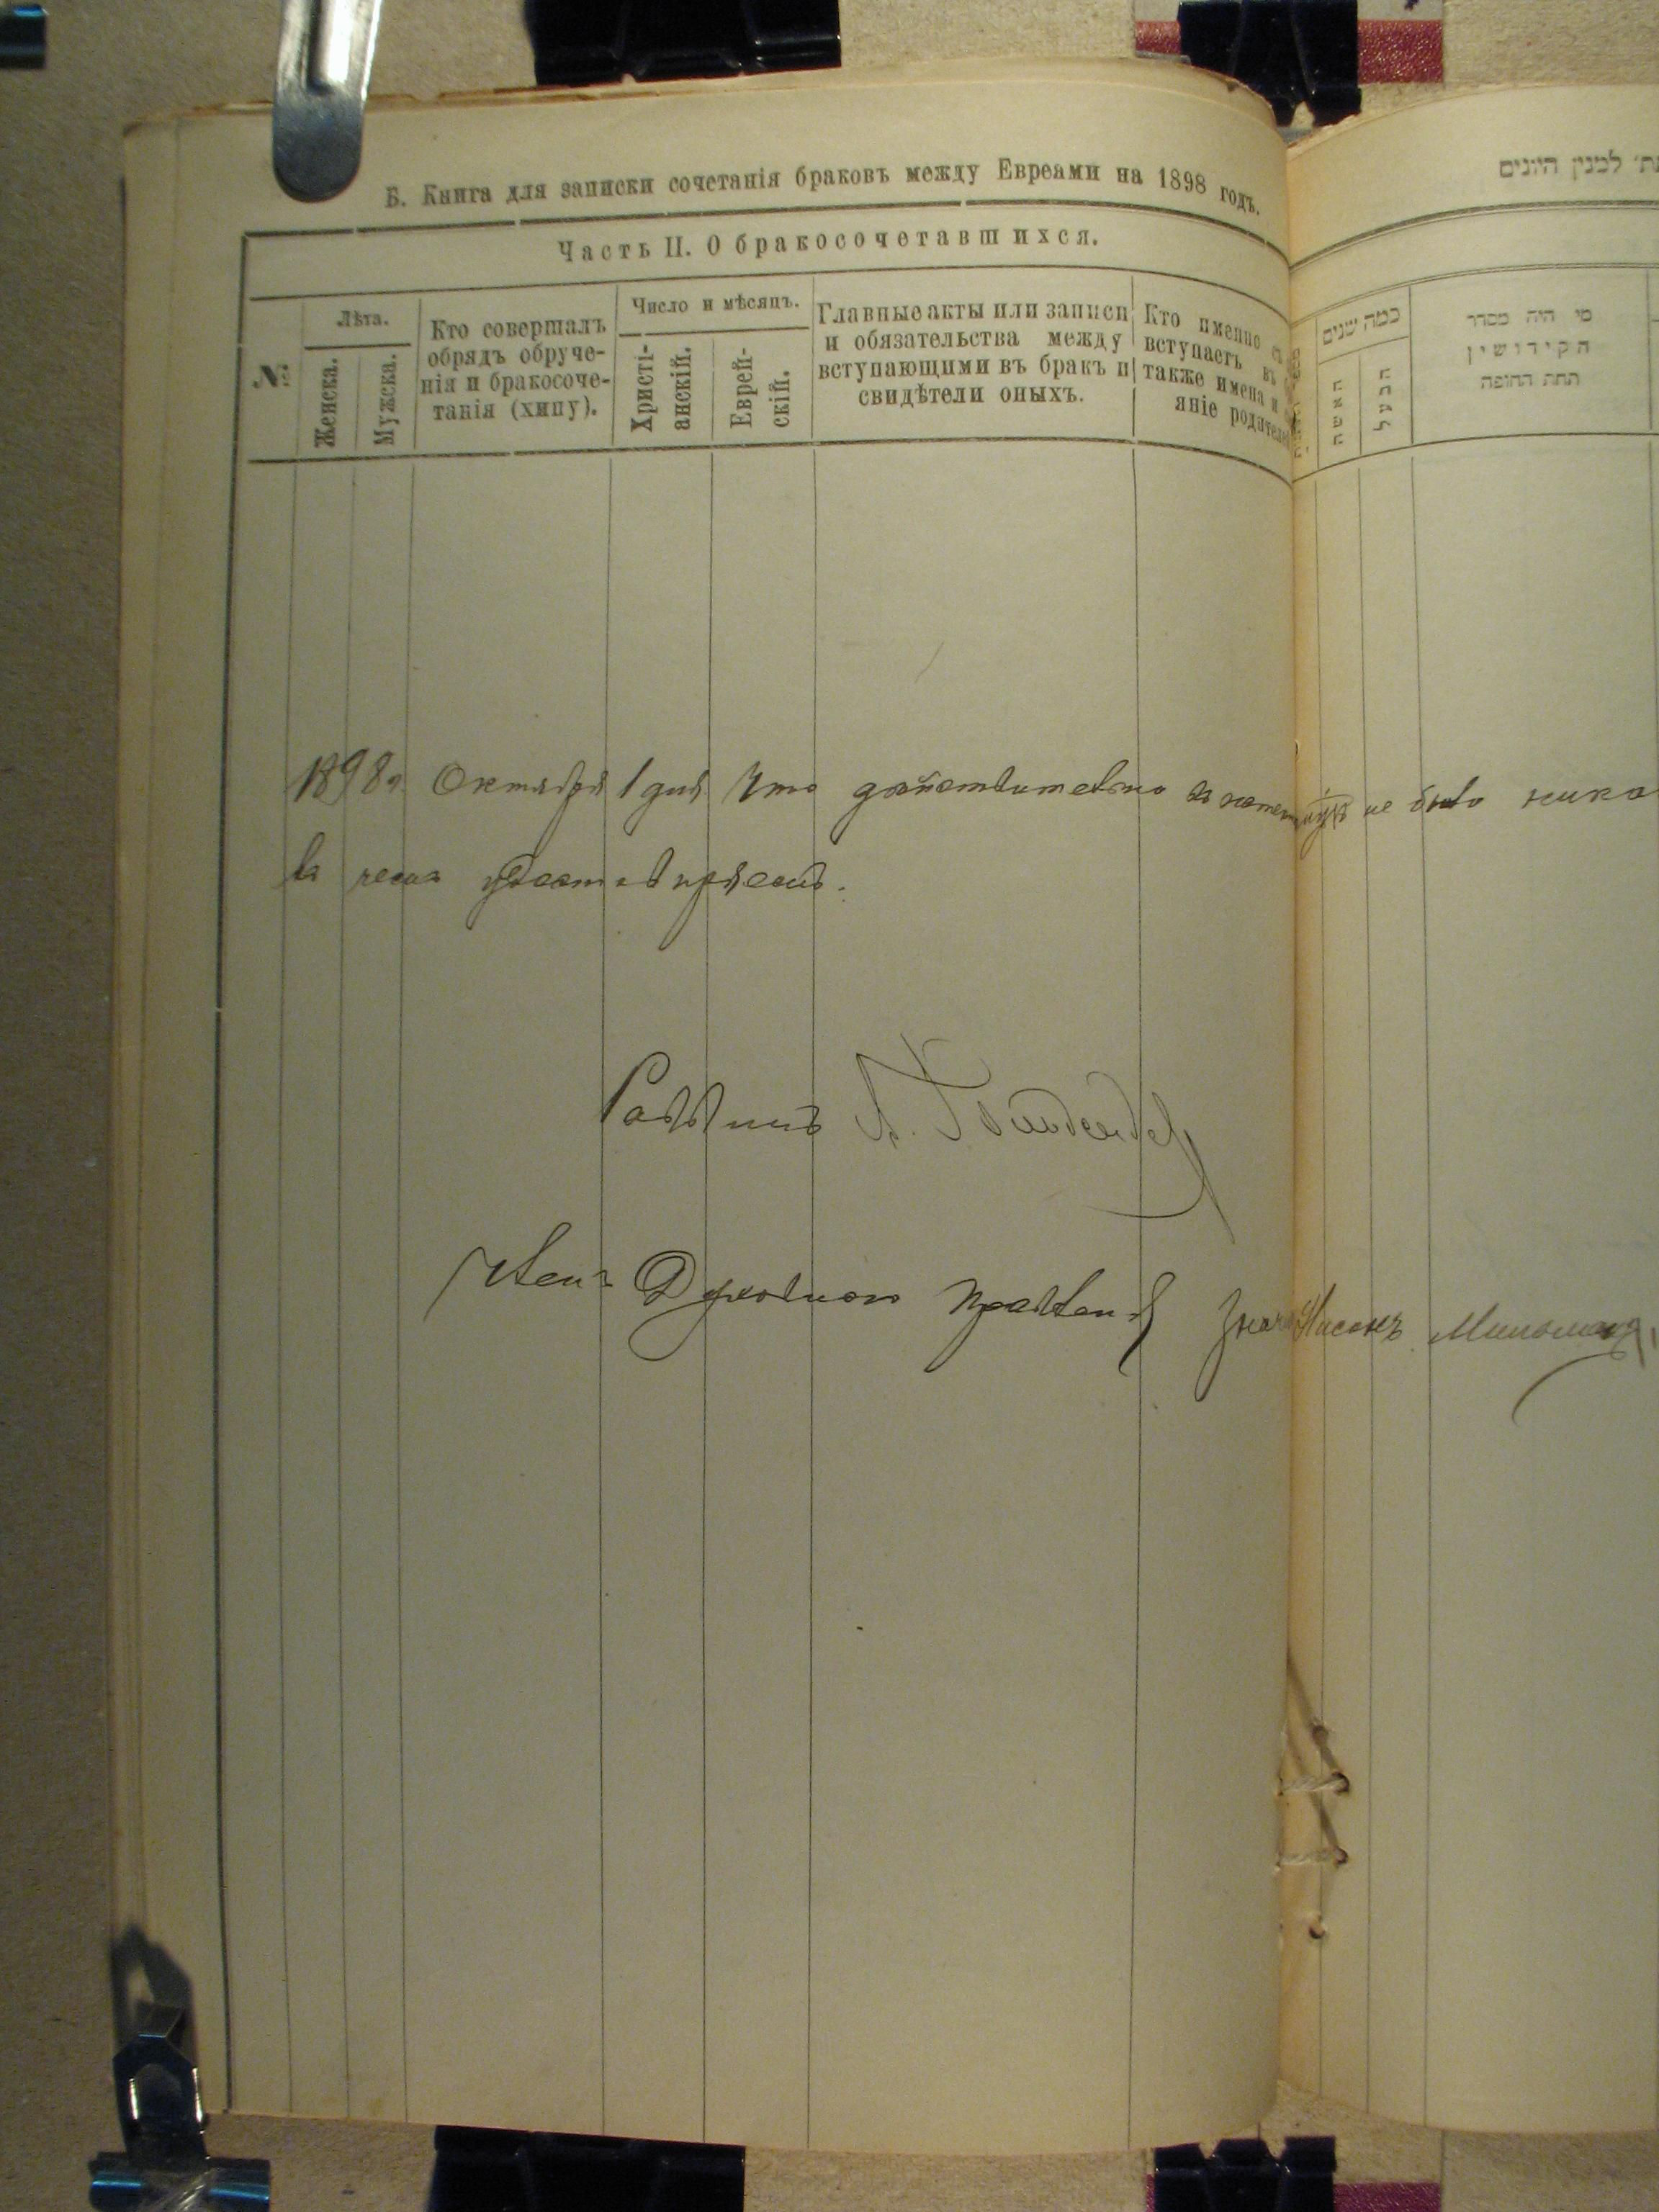 Б. Книга для записки сочетанія браковъ между Евреами на 1898 годъ.
Часть II. О бракосочетавшихся.
№
Лѣта.
Женска.
Мужеска.
Кто совершалъ
обрядъ обруче-
нія и бракосоче-
танія (хипу).
Число и мѣсяцъ.
Христі-
анскій.
Еврей-
скій.
Главные акты или записи
и обязательства между
вступающими въ бракъ и
свидѣтели оныхъ.
Кто именно съ
вступаетъ въ
также имена и
яніе родителей
למנין היונים
כמה שנים
האשה
הבעל
מי היה מסדר
הקידושין
תחת החופה
1898 г Октября 1 дня Что действительно не было
въ чемъ удостовѣряемъ.
Раввинъ
Членъ Духовнаго Правленія